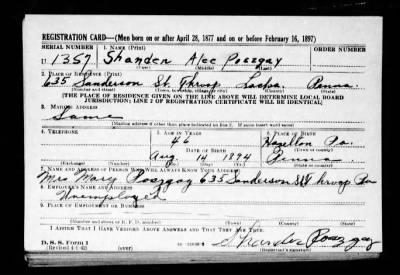 REGISTRATION CARD—(Men born on or after April 28, 1877 and on or before February 16, 1897)
SERIAL NUMBER 1. NAME (Print) ORDER NUMBER
U 1357 Shander Alec Poszgay
2. PLACE OF RESIDENCE (Print)
635 Sanderson St Throop Lacka. Penna.
[THE PLACE OF RESIDENCE GIVEN ON THE LINE ABOVE WILL DETERMINE LOCAL BOARD
JURISDICTION; LINE 2 OF REGISTRATION CERTIFICATE WILL BE IDENTICAL]
3. MAILING ADDRESS
Same
[Mailing address if other than place indicated on line 2. If same insert word same]
4. TELEPHONE 5. AGE IN YEARS 6. PLACE OF BIRTH
46 Hazelton Pa.
DATE OF BIRTH (Town or county)
Aug. 14 1894 Penna
(Exchange) (Number) (Mo.) (Day) (Yr.) (State or country)
7. NAME AND ADDRESS OF PERSON WHO WILL ALWAYS KNOW YOUR ADDRESS
Mrs Mary Poszgay 635 Sanderson St Throop Pa
8. EMPLOYER'S NAME AND ADDRESS
Unemployed
9. PLACE OF EMPLOYMENT OR BUSINESS
(Number and street or R. F. D. number) (Town) (County) (State)
I AFFIRM THAT I HAVE VERIFIED ABOVE ANSWERS AND THAT THEY ARE TRUE.
D. S. S. Form 1
(Revised 4-1-42) Shander Poszgay